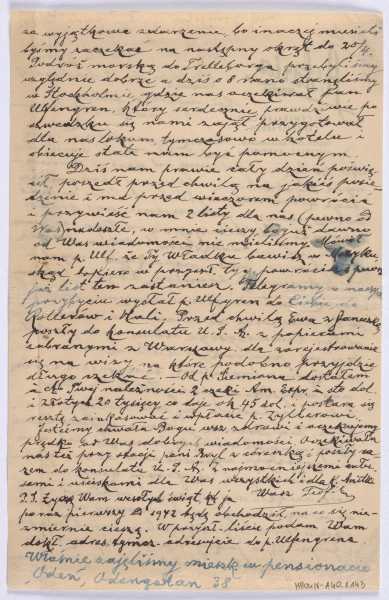 za wyjątkowe zdarzenie, bo inaczej mieli
byśmy zaczekać na następny okręt do 20/4.
Podróż morską do Trelleborga przebyliśmy
względnie dobrze a dziś o 8 rano stanęliśmy
w Stockholmie, gdzie nas oczekiwał pan
Ulfengren, który serdecznie, prawdziwie po
szwedzku się nami zajął przygotował
dla nas lokum, tymczasowo w hotelu i
obiecuje stale nam być pomocnym.
Dziś nam prawie cały dzień poświę-
cił, poszedł przed chwilą na jakieś posie-
dzenie i ma przed wieczorem powrócić
i przywieść nam 2 listy dla nas (pewno od
Was) nadeszłe, co mnie cieszy, bo już dawno
od Was wiadomości nie mieliśmy. Mówił
nam p. Ulf. że Ty Władku bawisz w
skąd dopiero w przyszł. tyg. powrócisz i
już list ten zastaniesz. Telegramy o naszym
przybyciu wysłał p. Ulfgren do
i Hali, Przed chwilą Ewa z
poszły do konsulatu U.S.A. z papierami
zabranymi z Warszawy, dla zarejestrowania
się na wizy, na które podobno przyjdzie
długo czekać. Od p. dostałem
à c/o Twej należności 2 czeki Am. Expr. à sto dol.
i złotych 20 tysięcy co daje ok 45 dol. i postara się
resztę zainkasować i wpłacić p.
Jesteśmy chwała Bogu wsz. zdrowi i oczekujemy
prędko od Was dobrych wiadomości. Oczekiwała
nas też przy stacji pani z córeczką i poszły ra-
zem do konsulatu U.S.A. Z najmocniejszemi cału-
sami i uściskami dla Was wszystkich i dla
P.S. Życzę Wam wesołych świąt Wasz
po raz pierwszy od 1942 będę obchodził na co się nie-
zmiernie cieszę. W przyszł. liście podam Wam
dokł. adres, tymcz. adresujcie do p. Ulfengrena
Właśnie zajęliśmy mieszk. w pensionacie
Oden, Odengatan 38